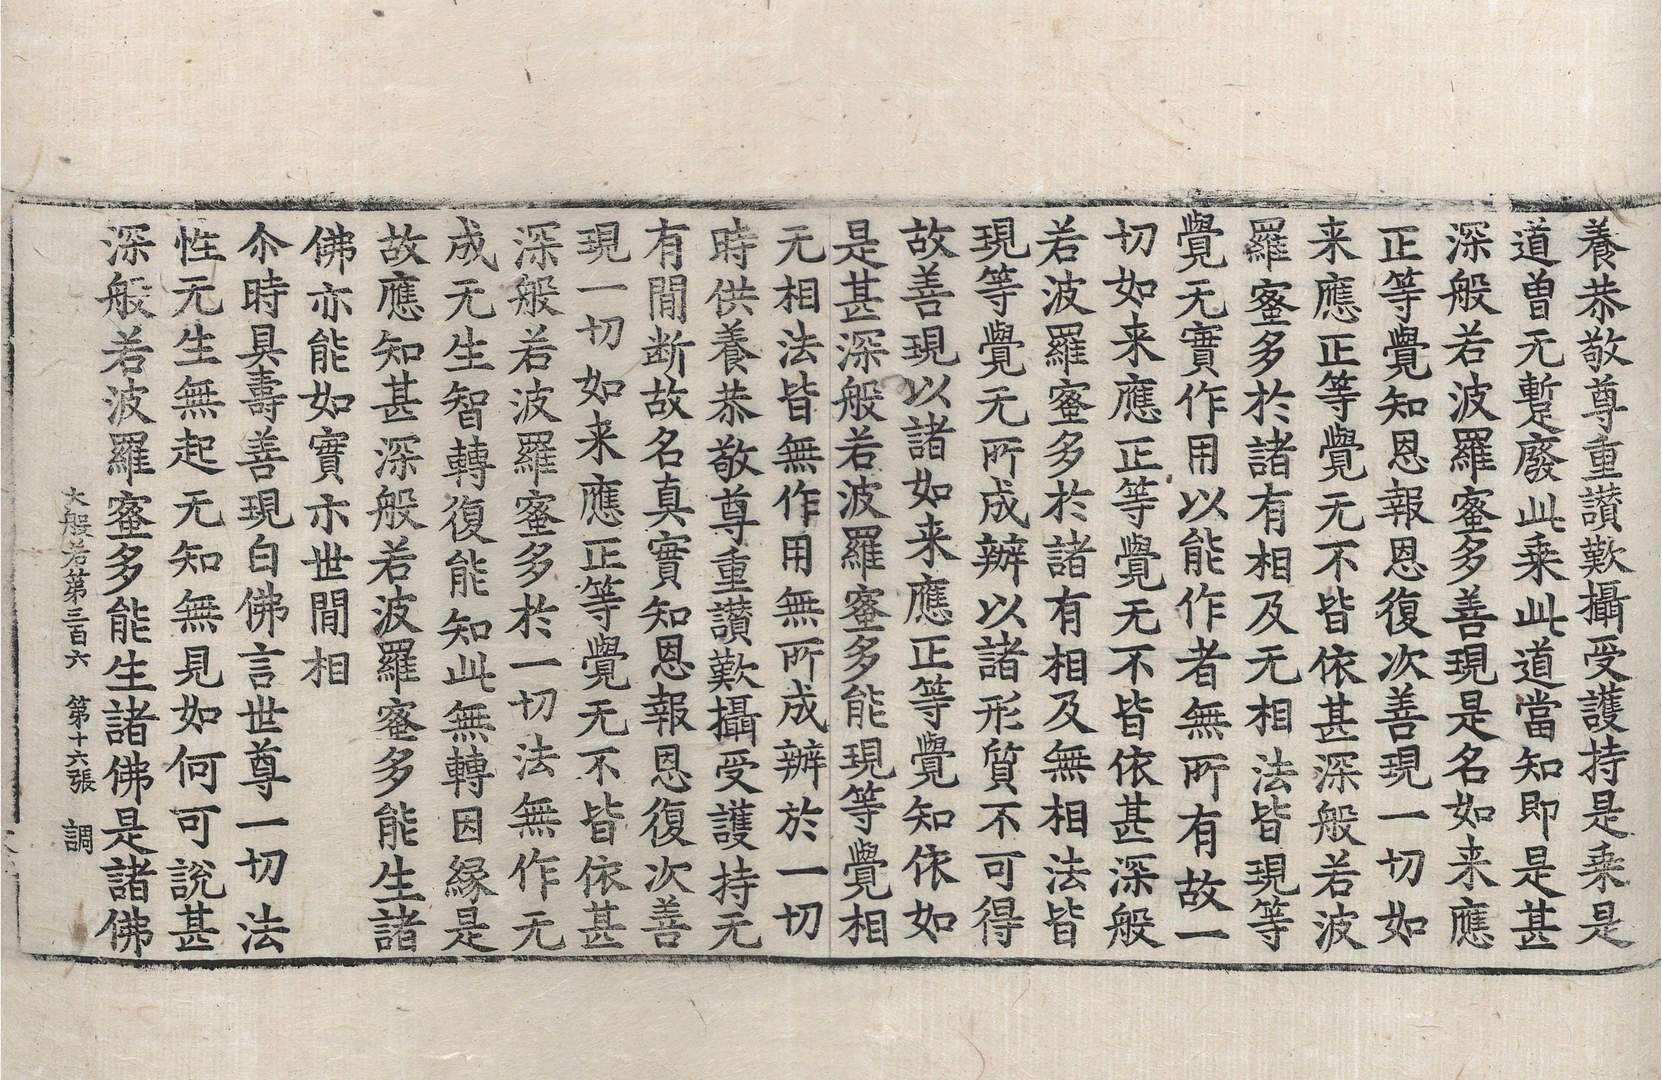 養恭敬尊重讃歎攝受護持是乗是
道曾无蹔廢此乗此道當知即是甚
深般若波羅蜜多善現是名如来應
正等覺知恩報恩復次善現一切如
来應正等覺无不皆依甚深般若波
羅蜜多於諸有相及无相法皆現等
覺无實作用以能作者無所有故一
切如来應正等覺无不皆依甚深般
若波羅蜜多於諸有相及無相法皆
現等覺无所成辦以諸形質不可得
故善現以諸如来應正等覺知依如
是甚深般若波羅蜜多能現等覺相
无相法皆無作用無所成辦於一切
時供養恭敬尊重讃歎攝受護持无
有間断故名真實知恩報恩復次善
現一切如来應正等覺无不皆依甚
深般若波羅蜜多於一切法無作无
成无生智轉復能知此無轉因緣是
故應知甚深般若波羅蜜多能生諸
佛亦能如實示世間相
尒時具壽善現白佛言世尊一切法
性无生無起无知無見如何可說甚
深般若波羅蜜多能生諸佛是諸佛
大般若第三百六　第十六張　調